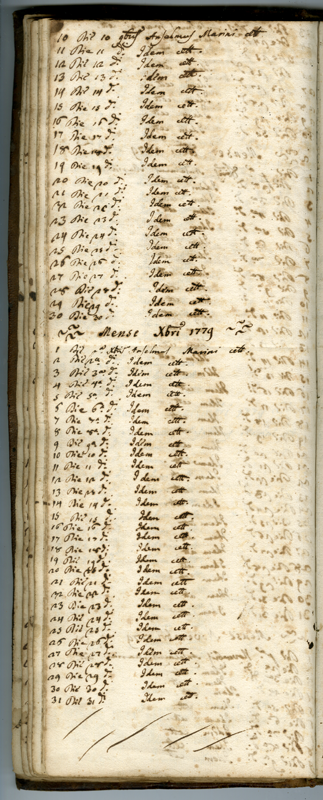 10 Die 10 9bris Anselmus Marini ctt.
11 Die 11 dº. Idem ctt.
12 Die 12 dº. Idem ctt.
13 Die 13 dº. Idem ctt.
14 Die 14 dº. Idem ctt.
15 Die 15 dº. Idem ctt.
16 Die 16 dº. Idem ctt.
17 Die 17 dº. Idem ctt.
18 Die 18 dº. Idem ctt.
19 Die 19 dº. Idem ctt.
20 Die 20 dº. Idem ctt.
21 Die 21 dº. Idem ctt.
22 Die 22 dº. Idem ctt.
23 Die 23 dº. Idem ctt.
24 Die 24 dº. Idem ctt.
25 Die 25 dº. Idem ctt.
26 Die 26 dº. Idem ctt.
27 Die 27 dº. Idem ctt.
28 Die 28 dº. Idem ctt.
29 Die 29 dº. Idem ctt.
30 Die 30 dº. Idem ctt.
Mense Xbris 1779
1 Die pª. Xbris Anselmus Marini ctt.
2 Die 2ª dº. Idem ctt.
3 Die 3ª dº. Idem ctt.
4 Die 4ª dº. Idem ctt.
5 Die 5ª dº. Idem ctt.
6 Die 6ª dº. Idem ctt.
7 Die 7ª dº. Idem ctt.
8 Die 8ª dº. Idem ctt.
9 Die 9ª dº. Idem ctt.
10 Die 10 dº. Idem ctt.
11 Die 11 dº. Idem ctt.
12 Die 12 dº. Idem ctt.
13 Die 13 dº. Idem ctt.
14 Die 14 dº. Idem ctt.
15 Die 15 dº. Idem ctt.
16 Die 16 dº. Idem ctt.
17 Die 17 dº. Idem ctt.
18 Die 18 dº. Idem ctt.
19 Die 19 dº. Idem ctt.
20 Die 20 dº. Idem ctt.
21 Die 21 dº. Idem ctt.
22 Die 22 dº. Idem ctt.
23 Die 23 dº. Idem ctt.
24 Die 24 dº. Idem ctt.
25 Die 25 dº. Idem ctt.
26 Die 26 dº. Idem ctt.
27 Die 27 dº. Idem ctt.
28 Die 28 dº. Idem ctt.
29 Die 29 dº. Idem ctt.
30 Die 30 dº. Idem ctt.
31 Die 31 dº. Idem ctt.